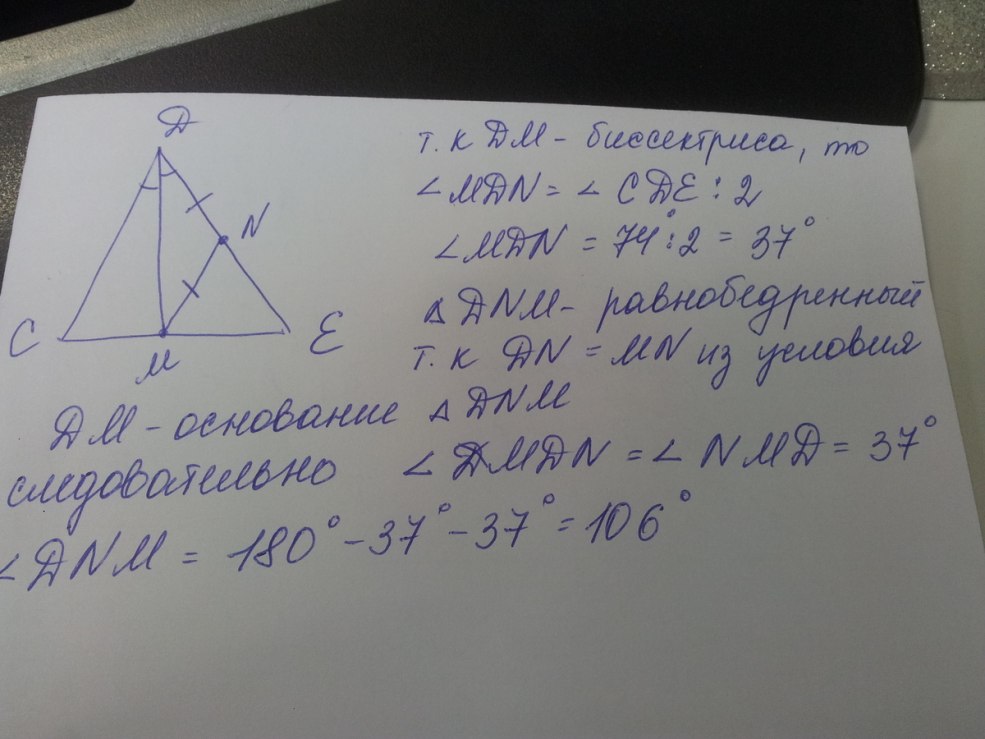 D
N
C
E
M
т. к DM - биссектриса, то
∠MDN = ∠CDE : 2
∠MDN = 74° : 2 = 37°
△DNM - равнобедренный
т. к DN = MN из условия
DM - основание △DNM
следовательно ∠MDN = ∠NMD = 37°
∠DNM = 180° - 37° - 37° = 106°